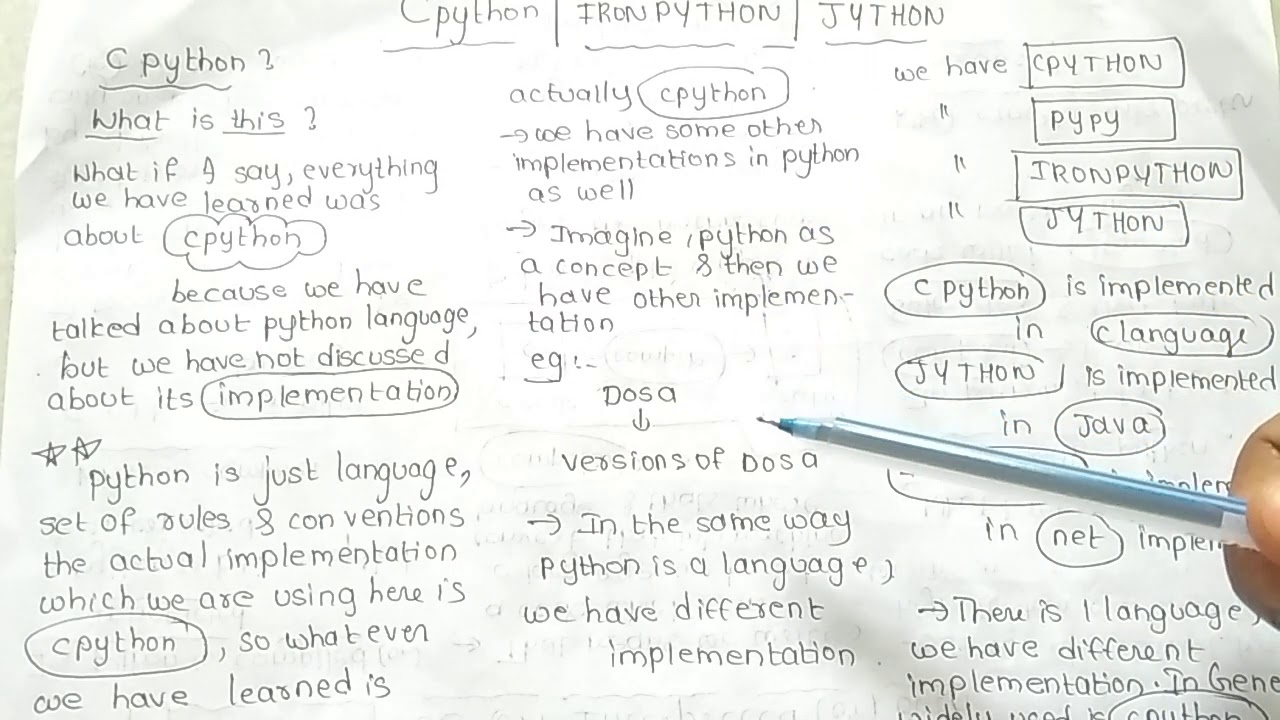 Cpython | IRONPYTHON | JYTHON
C python ?
What is this ?
What if I say, everything
we have learned was
about cpython
because we have
talked about python language,
but we have not discussed
about its implementation
python is just language,
set of rules & conventions
the actual implementation
which we are using here is
cpython, so what ever
we have learned is
actually cpython
→ we have some other
implementations in python
as well
→ Imagine, python as
a concept & then we
have other implemen-
tation
eg:-
Dosa
↓
versions of Dosa
→ In the same way
python is a language,
we have different
implementation
we have CPYTHON
" pypy
" IRONPYTHON
" JYTHON
C python is implemented
in C language
JYTHON is implemented
in Java
in net implem
→ There is 1 language,
we have different
implementation. In Gene
widely used is cpython